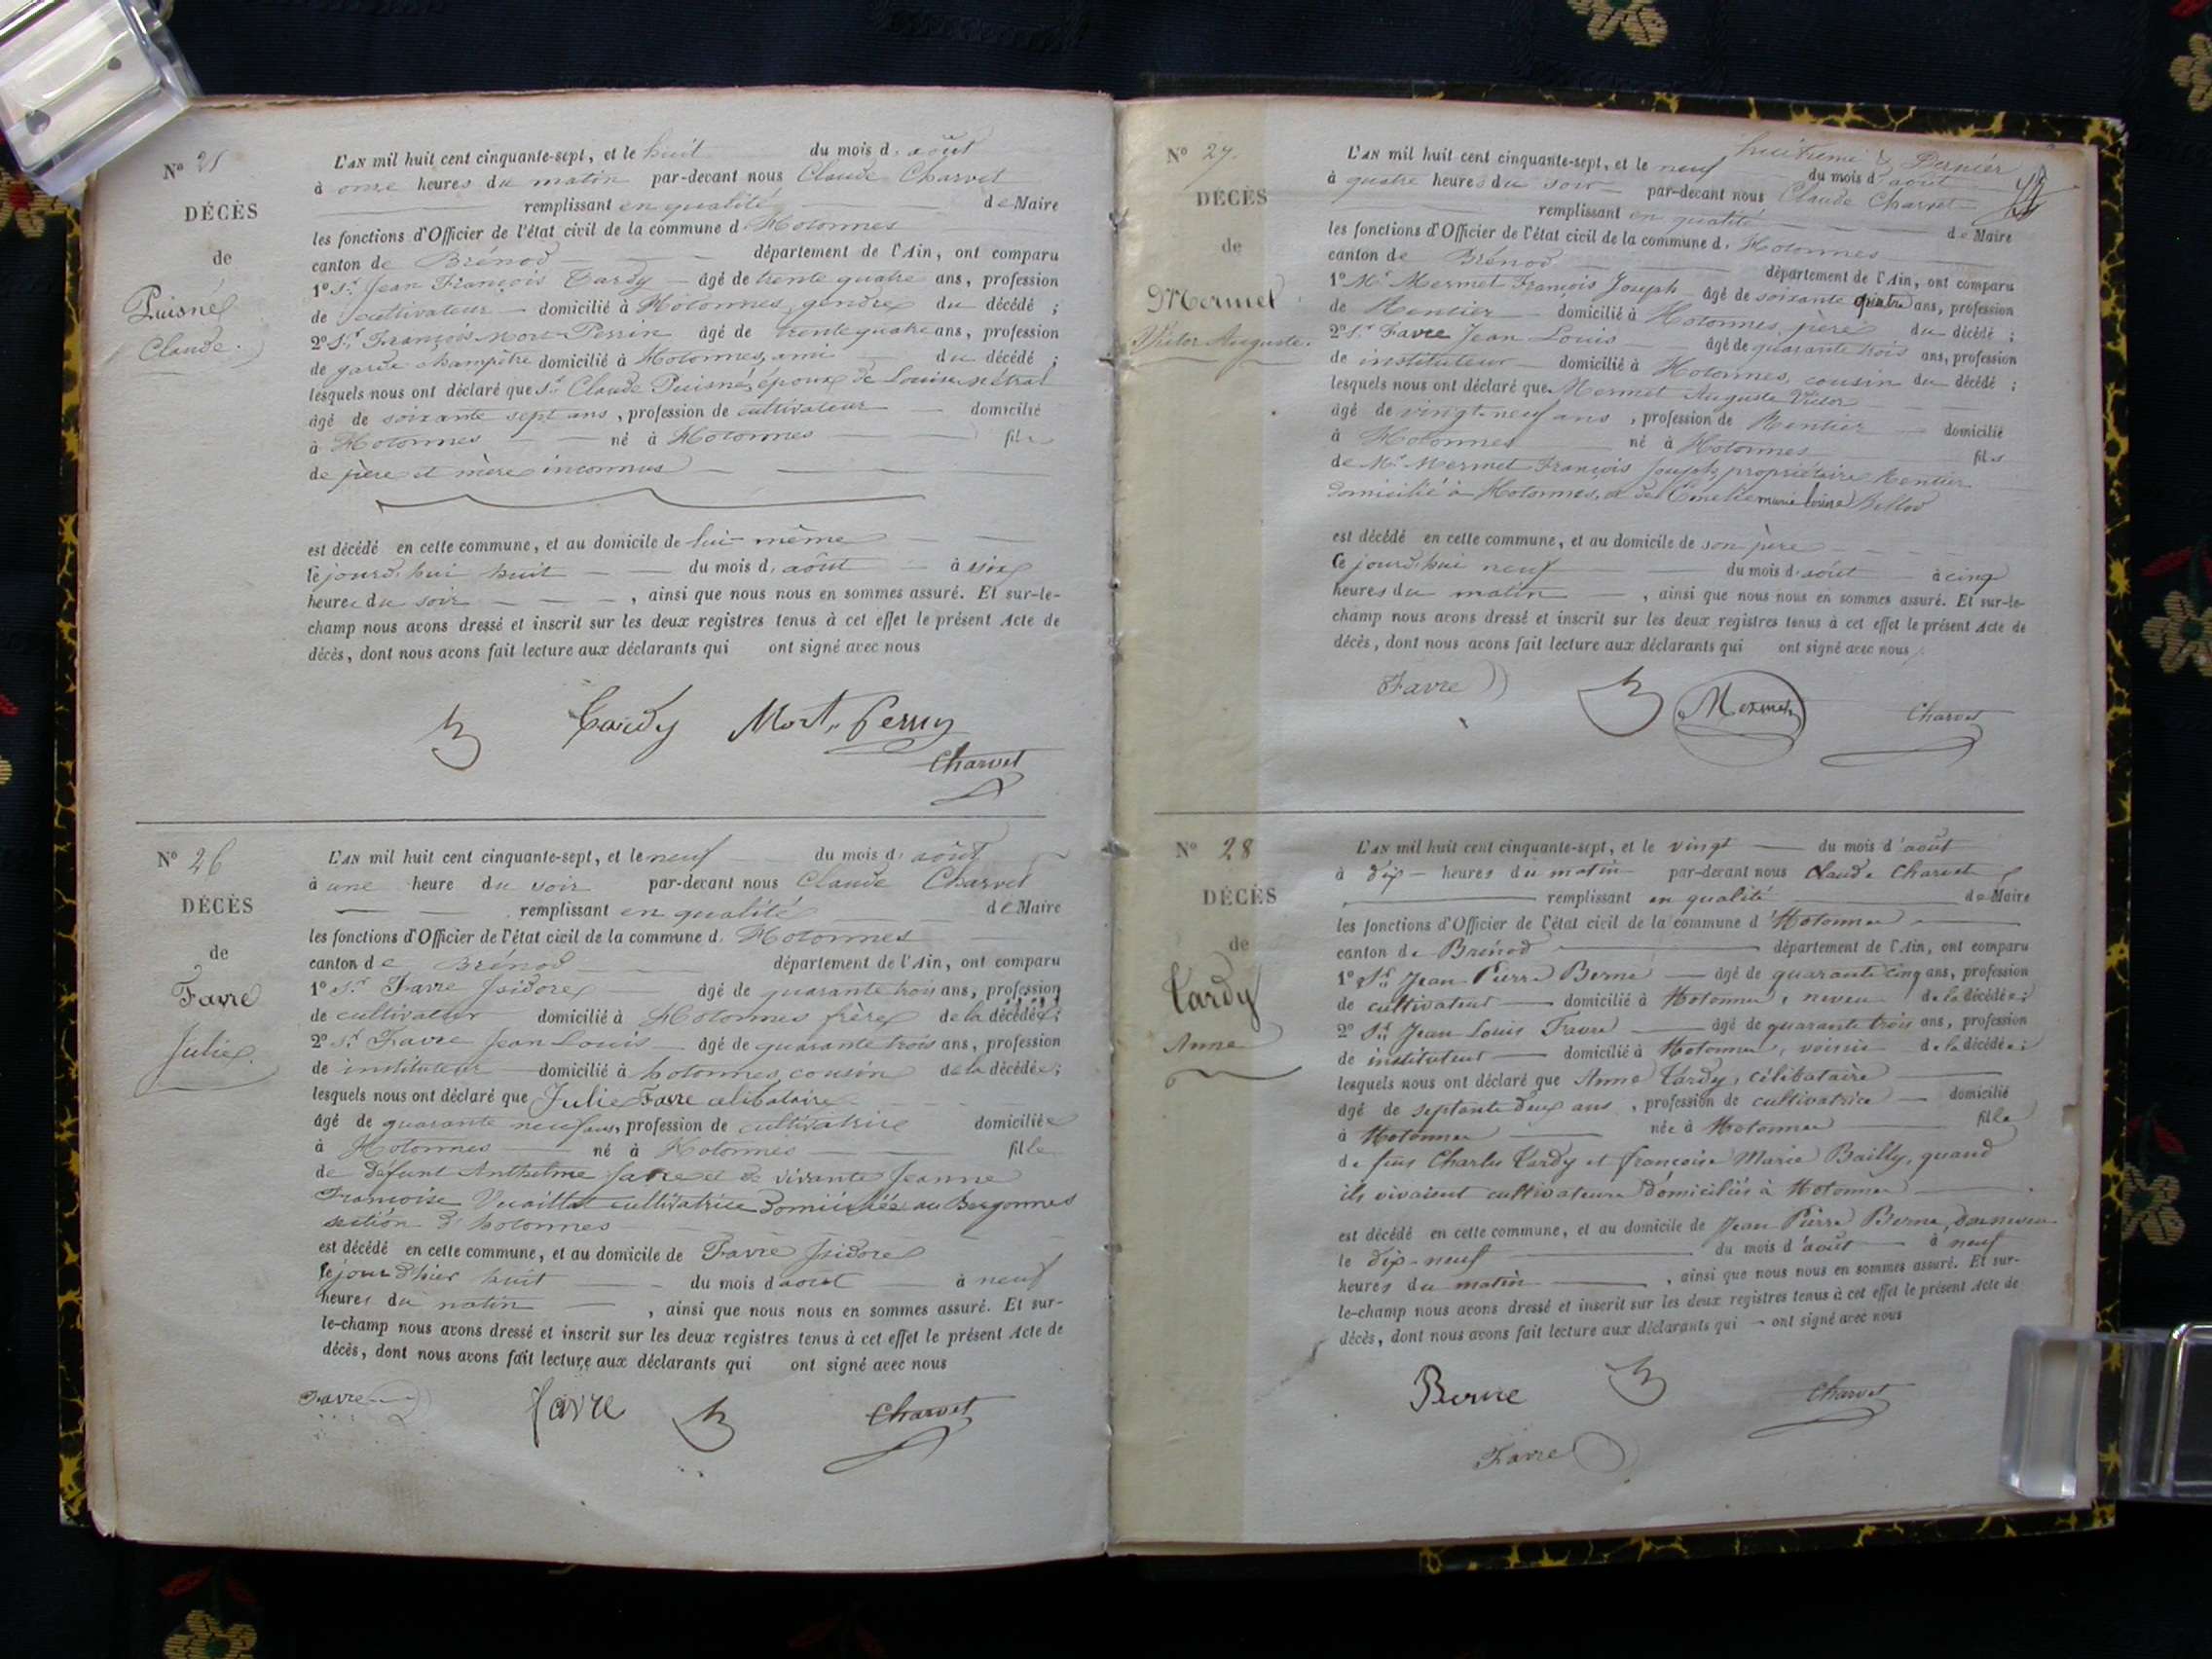 Nº 25
DÉCÈS
de
Puisné
Claude.
L'AN mil huit cent cinquante-sept, et le huit du mois d. août
à onze heures du matin par-devant nous Claude Charvet
remplissant en qualité de Maire
les fonctions d'Officier de l'état civil de la commune d. Hotonnes
canton de Brénod département de l'Ain, ont comparu
1º Sr. Jean François Tardy âgé de trente quatre ans, profession
de cultivateur domicilié à Hotonnes, gendre du décédé ;
2º Sr. François Mort-Perrin âgé de trente quatre ans, profession
de garde champêtre domicilié à Hotonnes, ami du décédé ;
lesquels nous ont déclaré que Sr. Claude Puisné, époux de Louise
âgé de soixante sept ans, profession de cultivateur domicilié
à Hotonnes né à Hotonnes fils
de père et mère inconnus
est décédé en cette commune, et au domicile de lui-même
le jourd'hui huit du mois d. août à
heures du soir, ainsi que nous nous en sommes assuré. Et sur-le-
champ nous avons dressé et inscrit sur les deux registres tenus à cet effet le présent Acte de
décès, dont nous avons fait lecture aux déclarants qui ont signé avec nous
Tardy Mort-Perrin
Charvet
Nº 26
DÉCÈS
de
Favre
Julie.
L'AN mil huit cent cinquante-sept, et le neuf du mois d. août
à une heure du soir par-devant nous Claude Charvet
remplissant en qualité de Maire
les fonctions d'Officier de l'état civil de la commune d. Hotonnes
canton de Brénod département de l'Ain, ont comparu
1º Sr. Favre Isidore âgé de quarante trois ans, profession
de cultivateur domicilié à Hotonnes frère de la décédée ;
2º Sr. Favre Jean Louis âgé de quarante trois ans, profession
de instituteur domicilié à hotonnes, cousin de la décédée ;
lesquels nous ont déclaré que Julie Favre célibataire
âgé de quarante neuf ans, profession de cultivatrice domiciliée
à Hotonnes né à Hotonnes fille
de défunt Anthelme favre et de vivante Jeanne
Françoise Vuaillat cultivatrice domiciliée au Bergonnes
section d'hotonnes
est décédé en cette commune, et au domicile de Favre Isidore
le jour d'hier huit du mois d'août à neuf
heures du matin, ainsi que nous nous en sommes assuré. Et sur-
le-champ nous avons dressé et inscrit sur les deux registres tenus à cet effet le présent Acte de
décès, dont nous avons fait lecture aux déclarants qui ont signé avec nous
Favre favre Charvet
huitième & Dernier
Nº 27.
DÉCÈS
de
Mermet
Victor Auguste.
L'AN mil huit cent cinquante-sept, et le neuf du mois d'août
à quatre heures du soir par-devant nous Claude Charvet
remplissant en qualité de Maire
les fonctions d'Officier de l'état civil de la commune d. Hotonnes
canton de Brénod département de l'Ain, ont comparu
1º Mr Mermet François Joseph âgé de soixante quatre ans, profession
de Rentier domicilié à Hotonnes, père du décédé ;
2º Sr. Favre Jean Louis âgé de quarante trois ans, profession
de instituteur domicilié à Hotonnes, cousin du décédé ;
lesquels nous ont déclaré que Mermet Auguste Victor
âgé de vingt-neuf ans, profession de Rentier domicilié
à Hotonnes né à Hotonnes fils
de Mr. Mermet François Joseph, propriétaire Rentier
domicilié à Hotonnes, et de Emelie marie louise Bellod
est décédé en cette commune, et au domicile de son père
Ce jourd'hui neuf du mois d'août à cinq
heures du matin, ainsi que nous nous en sommes assuré. Et sur-le-
champ nous avons dressé et inscrit sur les deux registres tenus à cet effet le présent Acte de
décès, dont nous avons fait lecture aux déclarants qui ont signé avec nous
Favre Mermet Charvet
Nº 28
DÉCÈS
de
Tardy
Anne
L'AN mil huit cent cinquante-sept, et le vingt du mois d'août
à dix heures du matin par-devant nous Claude Charvet
remplissant en qualité de Maire
les fonctions d'Officier de l'état civil de la commune d'Hotonnes
canton de Brénod département de l'Ain, ont comparu
1º Sr. Jean Pierre Berne âgé de quarante cinq ans, profession
de cultivateur domicilié à Hotonnes, neveu de la décédée ;
2º Sr. Jean Louis Favre âgé de quarante trois ans, profession
de instituteur domicilié à Hotonnes, voisin de la décédée ;
lesquels nous ont déclaré que Anne Tardy, célibataire
âgé de septante deux ans, profession de cultivatrice domicilié
à Hotonnes née à Hotonnes fille
de feus Charles Tardy et françoise Marie Bailly, quand
ils vivaient cultivateurs domiciliés à Hotonnes
est décédé en cette commune, et au domicile de Jean Pierre Berne, son neveu
le dix-neuf du mois d'août à neuf
heures du matin, ainsi que nous nous en sommes assuré. Et sur-
le-champ nous avons dressé et inscrit sur les deux registres tenus à cet effet le présent Acte de
décès, dont nous avons fait lecture aux déclarants qui ont signé avec nous
Berne Charvet
Favre